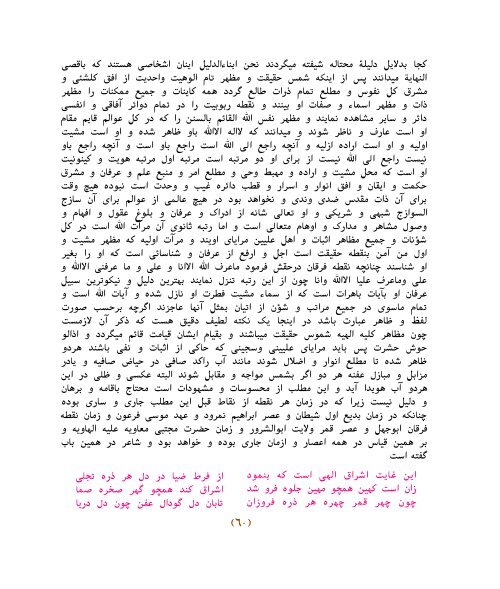 کجا بدلایل دلیلة محتاله شیفته میگردند نحن ابناءالدلیل اینان اشخاصی هستند که باقصی
النهایة میدانند پس از اینکه شمس حقیقت و مظهر تام الوهیت واحدیت از افق کلشئی و
مشرق کل نفوس و مطلع تمام ذرات طالع گردد همه کاینات و جمیع ممکنات را مظهر
ذات و مظهر اسماء و صفات او بینند و نقطه ربوبیت را در تمام دوائر آفاقی و انفسی
دائر و سایر مشاهده نمایند و مظهر نفس الله القائم بالسنن را که در کل عوالم قایم مقام
او است عارف و ناظر شوند و میدانند که لااله الاالله باو ظاهر شده و او است مشیت
اولیه و او است اراده ازلیه و آنچه راجع الی الله است راجع باو است و آنچه راجع باو
نیست راجع الی الله نیست از برای او دو مرتبه است مرتبه اول مرتبه هویت و کینونیت
او است که محل مشیت و اراده و مهبط وحی و مطلع امر و منبع علم و عرفان و مشرق
حکمت و ایقان و افق انوار و اسرار و قطب دائره غیب و وحدت است نبوده هیچ وقت
برای آن ذات مقدس ضدی وندی و نخواهد بود در هیچ عالمی از عوالم برای آن سازج
السوازج شبهی و شریکی و او تعالی شانه از ادراک و عرفان و بلوغ عقول و افهام و
وصول مشاهر و مدارک و اوهام متعالی است و اما رتبه ثانوی آن مرآت الله است در کل
شؤنات و جمیع مظاهر اثبات و اهل علیین مرایای اویند و مرآت اولیه که مظهر مشیت و
اول من آمن بنقطه حقیقت است اجل و ارفع از عرفان و شناسائی است که او را بغیر
او شناسند چنانچه نقطه فرقان درحقش فرمود ماعرف الله الاانا و علی و ما عرفنی الاالله و
علی وماعرف علیا الاالله وانا چون از این رتبه تنزل نمایند بهترین دلیل و نیکوترین سبیل
عرفان او بآیات باهرات است که از سماء مشیت فطرت او نازل شده و آیات الله است و
تمام ماسوی در جمیع مراتب و شؤن از اتیان بمثل آنها عاجزند اگرچه برحسب صورت
لفظ و ظاهر عبارت باشد در اینجا یک نکته لطیف دقیق هست که ذکر آن لازمست
چون مظاهر کلیه الهیه شموس حقیقت میباشند و بقیام ایشان قیامت قائم میگردد و اذالو
حوش حشرت پس باید مرایای علیینی وسجینی که حاکی از اثبات و نفی باشند هردو
ظاهر شده تا مطلع انوار و اضلال شوند مانند آب راکد صافی در حیاض صافیه و یادر
مزابل و مبازل عفنه هر دو اگر بشمس مواجه و مقابل شوند البته عکسی و ظلی در این
هردو آب هویدا آید و این مطلب از محسوسات و مشهودات است محتاج باقامه و برهان
و دلیل نیست زیرا که در زمان هر نقطه از نقاط قبل این مطلب جاری و ساری بوده
چنانکه در زمان بدیع اول شیطان و عصر ابراهیم نمرود و عهد موسی فرعون و زمان نقطه
فرقان ابوجهل و عصر قمر ولایت ابوالشرور و زمان حضرت مجتبی معاویه علیه الهاویه و
بر همین قیاس در همه اعصار و ازمان جاری بوده و خواهد بود و شاعر در همین باب
گفته است
این غایت اشراق الهی است که بنمود از فرط ضیا در دل هر ذره تجلی
زان است کهین همچو مهین جلوه فرو شد اشراق کند همچو گهر صخره صما
چون چهر قمر چهره هر ذره فروزان تابان دل گودال عفن چون دل دریا
(٦٠)